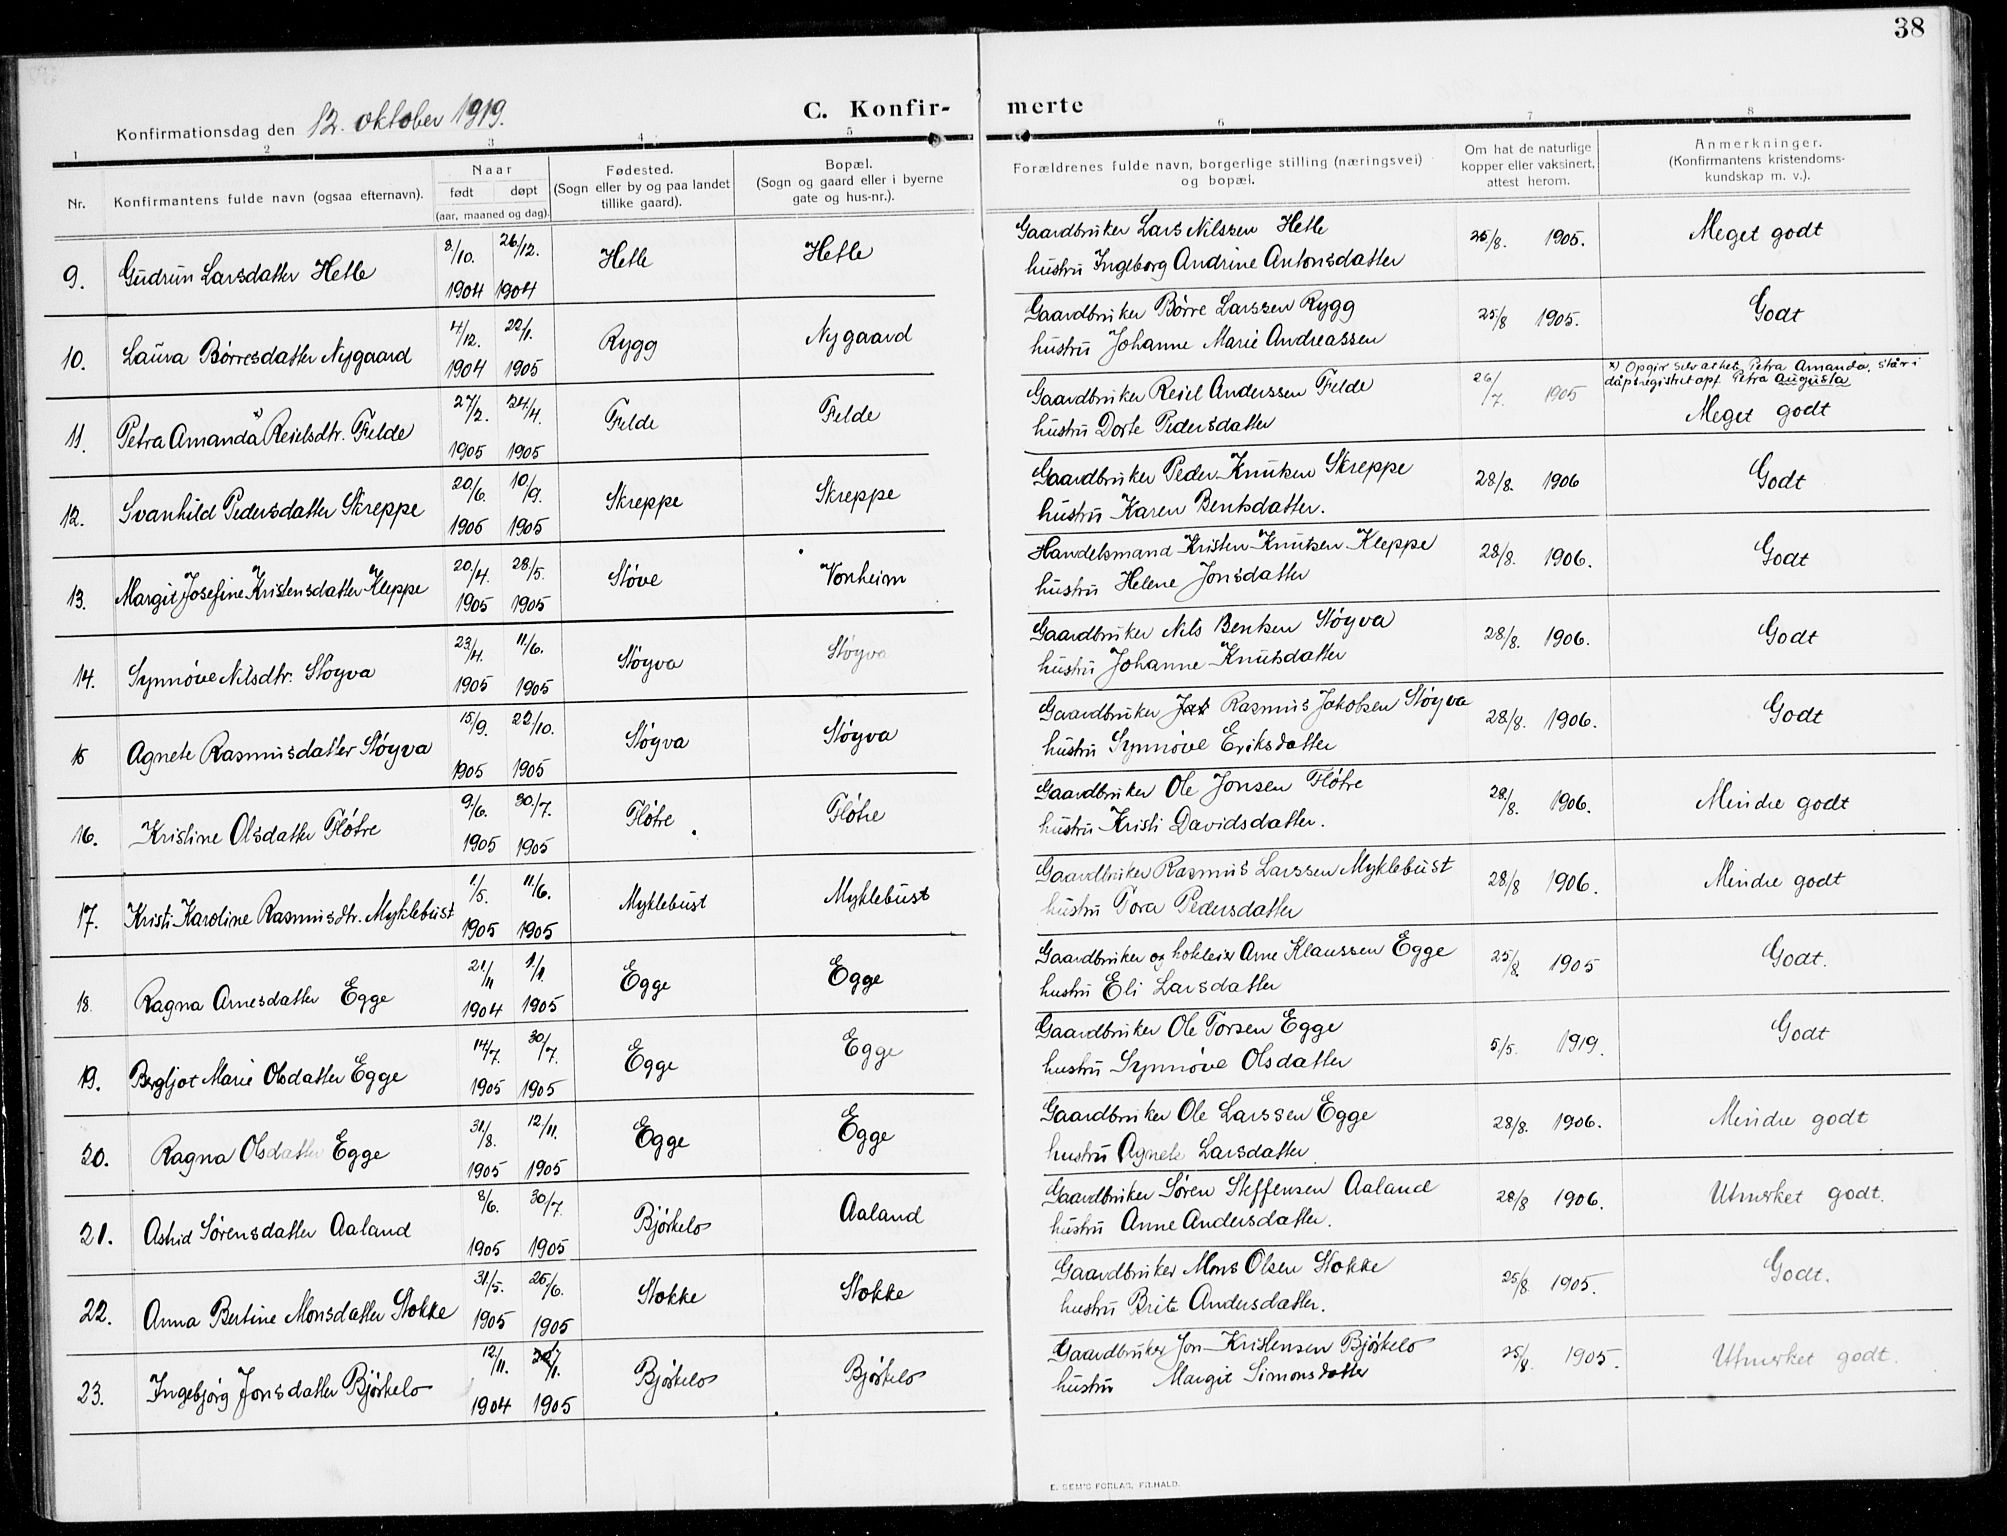 38
Konfirmationsdag den 12. oktober 1919.
C. Konfir- merte
1 2 3 4 5 6 7 8
Nr.
Konfirmantens fulde navn (ogsaa efternavn).
Naar
født døpt
(aar, maaned og dag).
Fødested.
(Sogn eller by og paa landet
tillike gaard).
Bopæl.
(Sogn og gaard eller i byerne
gate og hus-nr.).
Forældrenes fulde navn, borgerlige stilling (næringsvei)
og bopæl.
Om hat de naturlige
kopper eller vaksinert,
attest herom.
Anmerkninger.
(Konfirmantens kristendoms-
kundskap m. v.).
9. Gudrun Larsdatter Hetle 8/10. 1904 26/12. 1904 Hetle Hetle Gaardbruker Lars Nilssen Hetle 25/8. 1905. Meget godt
hustru Ingeborg Andrine Antonsdatter
10. Laura Børresdatter Nygaard 4/12. 1904 22/1. 1905 Rygg Nygaard Gaardbruker Børre Larssen Rygg 25/8 1905. Godt
hustru Johanne Marie Andreassen
x) Opgir selv at hete Petra Amanda, står i
dåpsregistret opf. Petra Augusta
11. Petra Amanda x) Reielsdtr. Felde 27/2. 1905 24/4. 1905 Felde Felde Gaardbruker Reiel Anderssen Felde 26/7. 1905 Meget godt
hustru Dorte Pedersdatter
12. Svanhild Pedersdatter Skreppe 20/6. 1905 10/9. 1905 Skreppe Skreppe Gaardbruker Peder Knutsen Skreppe 28/8. 1906 Godt
hustru Karen Bentsdatter.
13. Margit Josefine Kristensdatter Kleppe 20/4. 1905 28/5. 1905 Støve Vonheim Handelsmand Kristen Knutsen Kleppe 28/8. 1906. Godt
hustru Helene Jonsdatter
14. Synnøve Nilsdtr. Støyva 23/4. 1905 11/6. 1905 Støyva Støyva Gaardbruker Nils Bentsen Støyva 28/8. 1906. Godt
hustru Johanne Knutsdatter
15 Agnete Rasmusdatter Støyva 15/9. 1905 22/10. 1905 Støyva Støyva Gaardbruker Jak Rasmus Jakobsen Støyva 28/8. 1906. Godt
hustru Synnøve Eriksdatter
16. Kristine Olsdatter Fløtre 9/6. 1905 30/7. 1905 Fløtre Fløtre Gaardbruker Ole Jonsen Fløtre 28/8. 1906. Mindre godt
hustru Kristi Davidsdatter.
17. Kristi Karoline Rasmusdtr. Myklebust 1/5. 1905 11/6. 1905 Myklebust Myklebust Gaardbruker Rasmus Larssen Myklebust 28/8 1906. Mindre godt
hustru Tora Pedersdatter
18. Ragna Arnesdatter Egge 21/11 1904 1/1. 1905 Egge Egge Gaardbruker og hotleier Arne Klaussen Egge 25/8. 1905 Godt.
hustru Eli Larsdatter
19. Bergljot Marie Olsdatter Egge 14/7. 1905 30/7. 1905 Egge Egge Gaardbruker Ole Torsen Egge 5/5. 1919. Godt
hustru Synnøve Olsdatter
20. Ragna Olsdatter Egge 31./8. 1905 12/11. 1905 Egge Egge Gaardbruker Ole Larssen Egge 28/8. 1906. Mindre godt
hustru Agnete Larsdatter
21. Astrid Sørensdatter Aaland 8/6. 1905 30/7. 1905 Bjørkelo Aaland Gaardbruker Søren Steffensen Aaland 28/8 1906. Utmerket godt.
hustru Anne Andersdatter.
22. Anna Bertine Monsdatter Stokke 31./5. 1905 25/6. 1905 Stokke Stokke Gaardbruker Mons Olsen Stokke 25/8. 1905. Godt.
hustru Brite Andersdatter.
23. Ingebjørg Jonsdatter Bjørkelo 12./11. 1904 /1. 1905 Bjørkelo Bjørkelo Gaardbruker Jon Kristensen Bjørkelo 25/8. 1905. Utmerket godt.
hustru Margit Simonsdatter
E. SEM'S FORLAG, FR.HALD.